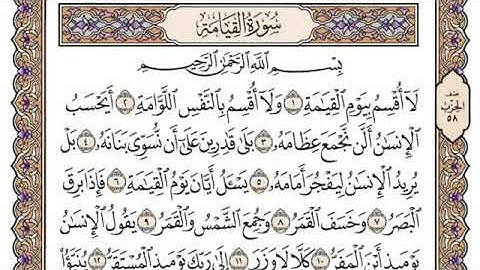 سُورَةُ الْقِيَامَةِ
بِسْمِ اللَّهِ الرَّحْمَٰنِ الرَّحِيمِ
لَا أُقْسِمُ بِيَوْمِ الْقِيَٰمَةِ ١ وَلَا أُقْسِمُ بِالنَّفْسِ اللَّوَّامَةِ ٢ أَيَحْسَبُ
الْإِنسَٰنُ أَلَّن نَّجْمَعَ عِظَامَهُۥ ٣ بَلَىٰ قَٰدِرِينَ عَلَىٰ أَن نُّسَوِّيَ بَنَانَهُۥ ٤ بَلْ
يُرِيدُ الْإِنسَٰنُ لِيَفْجُرَ أَمَامَهُۥ ٥ يَسْـَٔلُ أَيَّانَ يَوْمُ الْقِيَٰمَةِ ٦ فَإِذَا بَرِقَ
الْبَصَرُ ٧ وَخَسَفَ الْقَمَرُ ٨ وَجُمِعَ الشَّمْسُ وَالْقَمَرُ ٩ يَقُولُ الْإِنسَٰنُ
يَوْمَئِذٍ أَيْنَ الْمَفَرُّ ١٠ كَلَّا لَا وَزَرَ ١١ إِلَىٰ رَبِّكَ يَوْمَئِذٍ الْمُسْتَقَرُّ ١٢ يُنَبَّؤُا
نصف
الحزب
٥٨